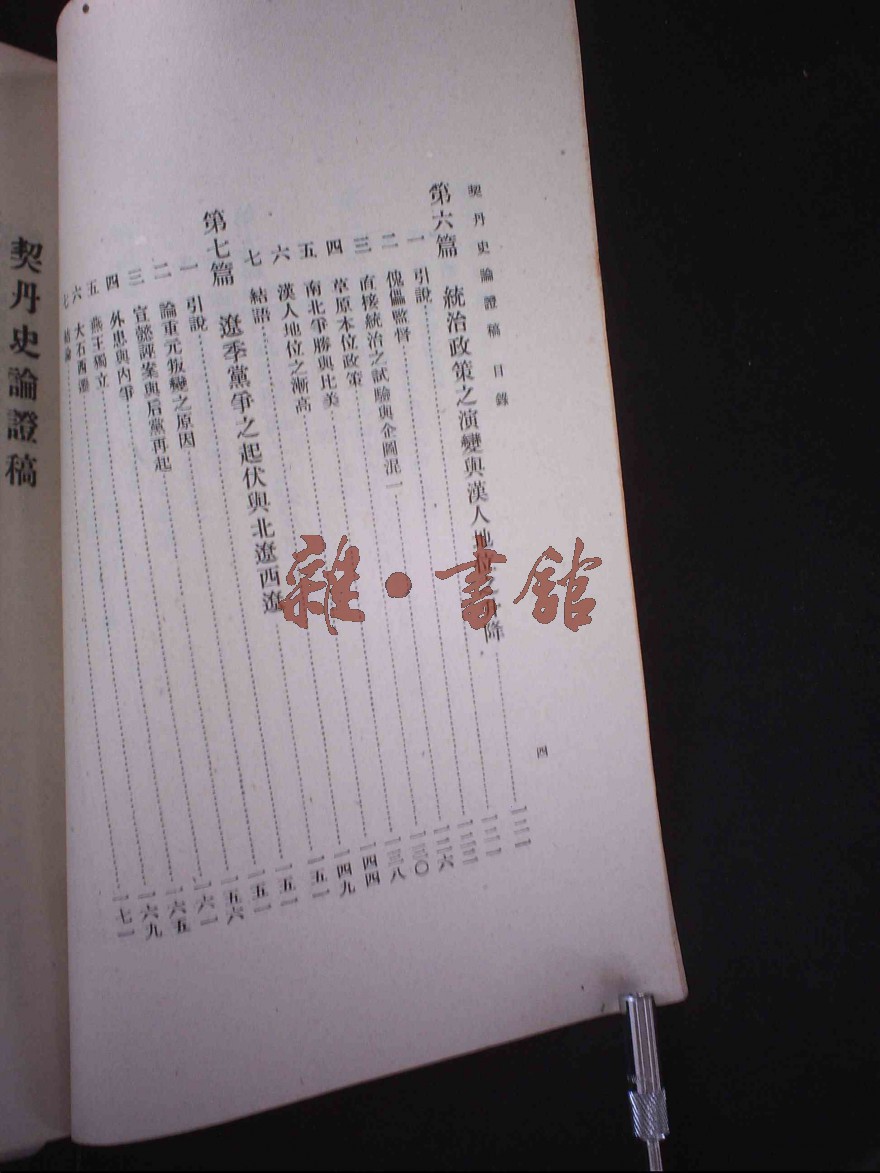 契丹史論證稿 目錄 四
第六篇 統治政策之演變與漢人地位之降 一二一
一 引說 一二一
二 傀儡監督 一二二
三 直接統治之試驗與企圖混一 一二六
四 草原本位政策 一三〇
五 南北爭勝與比美 一三八
六 漢人地位之漸高 一四四
七 結語 一四九
第七篇 遼季黨爭之起伏與北遼西遼 一五一
一 引說 一五一
二 論重元叛變之原因 一五一
三 宣懿誣案與后黨再起 一五六
四 外患與內爭 一六一
五 燕王獨立 一六五
六 大石西遷 一六九
七 結論 一七一
契丹史論證稿
雜·書館